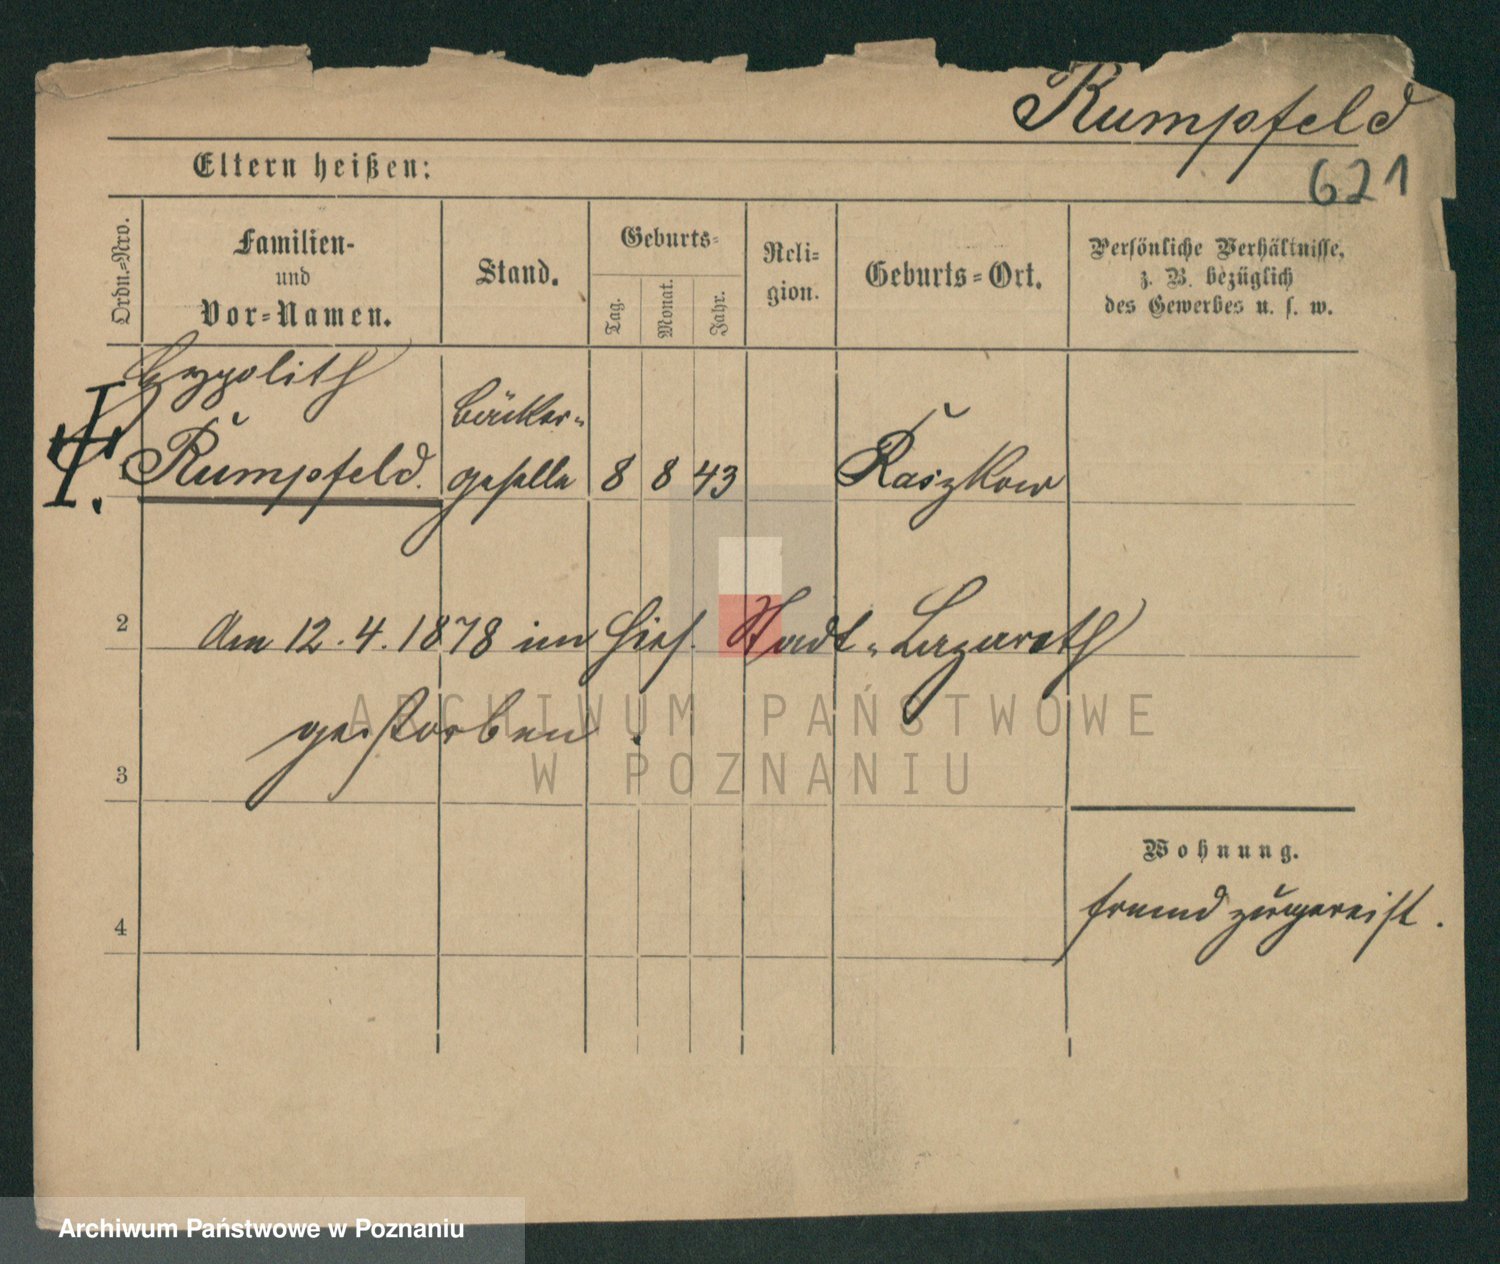 Rumpfeld
621
Eltern heißen:
Ordn.-Nro.
Familien-
und
Vor-Namen.
Stand.
Geburts-
Tag.
Monat.
Jahr.
Reli-
gion.
Geburts-Ort.
Persönliche Verhältnisse,
z. B. bezüglich
des Gewerbes u. s. w.
Hyppolith
Rumpfeld.
Bäcker-
geselle
8 8 43
Raszkow
2
Am 12.4.1878 im hies. Stadt-Lazareth
gestorben.
3
ARCHIWUM PAŃSTWOWE
W POZNANIU
Wohnung.
fremd zugereist.
4
Archiwum Państwowe w Poznaniu